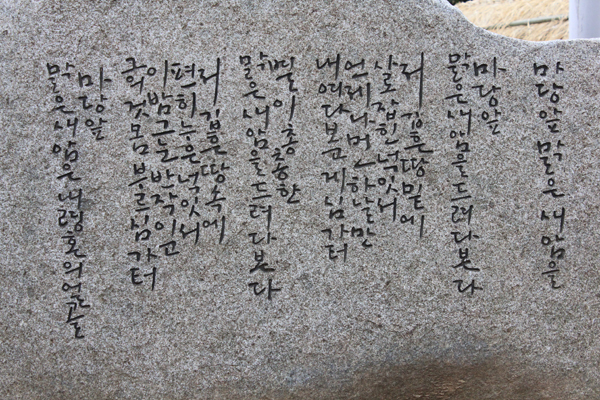 마당앞 맑은 새암을
마당앞
맑은새암을드려다본다
저 깁흔땅밑에
사로잡힌넋잇서
언제나먼하날만
내여다보고게심가터
별이총총한
맑은새암을드려다본다
저 깁흔땅속에
편히누은넋잇서
이밤그눈반작이고
그의것몸부르심가터
마당앞
맑은새암은내령혼의얼골